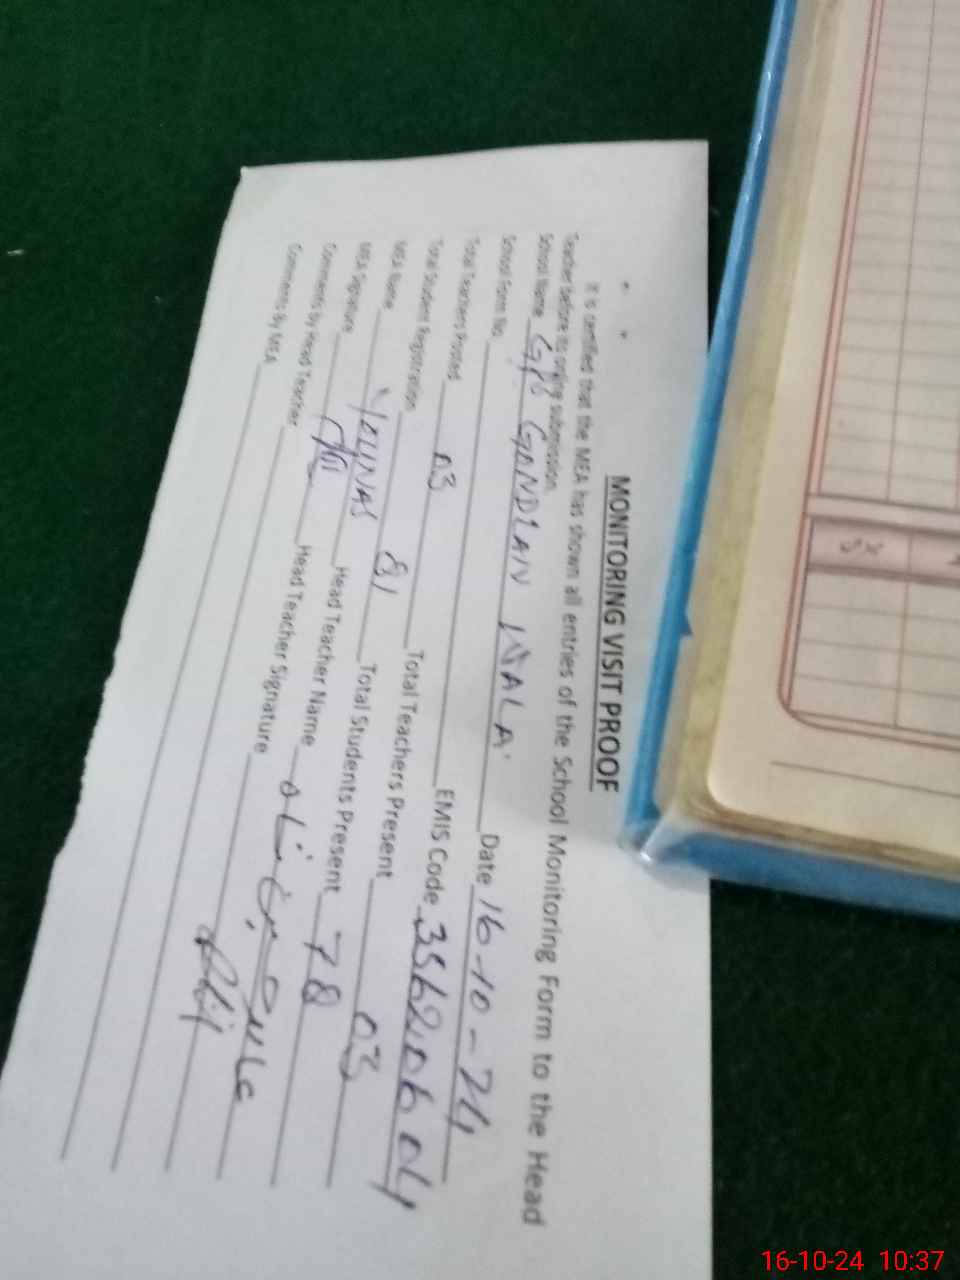 MONITORING VISIT PROOF
It is certified that the MEA has shown all entries of the School Monitoring Form to the Head
Teacher before its online submission.
School Name GPS GONDLAN WALA Date 16-10-24
School Form No. EMIS Code 35620604
Total Teachers Posted 03 Total Teachers Present 03
Total Student Registration 81 Total Students Present 78
MEA Name YOUNAS Head Teacher Name
MEA Signature Head Teacher Signature
Comments by Head Teacher
Comments By MEA
16-10-24 10:37